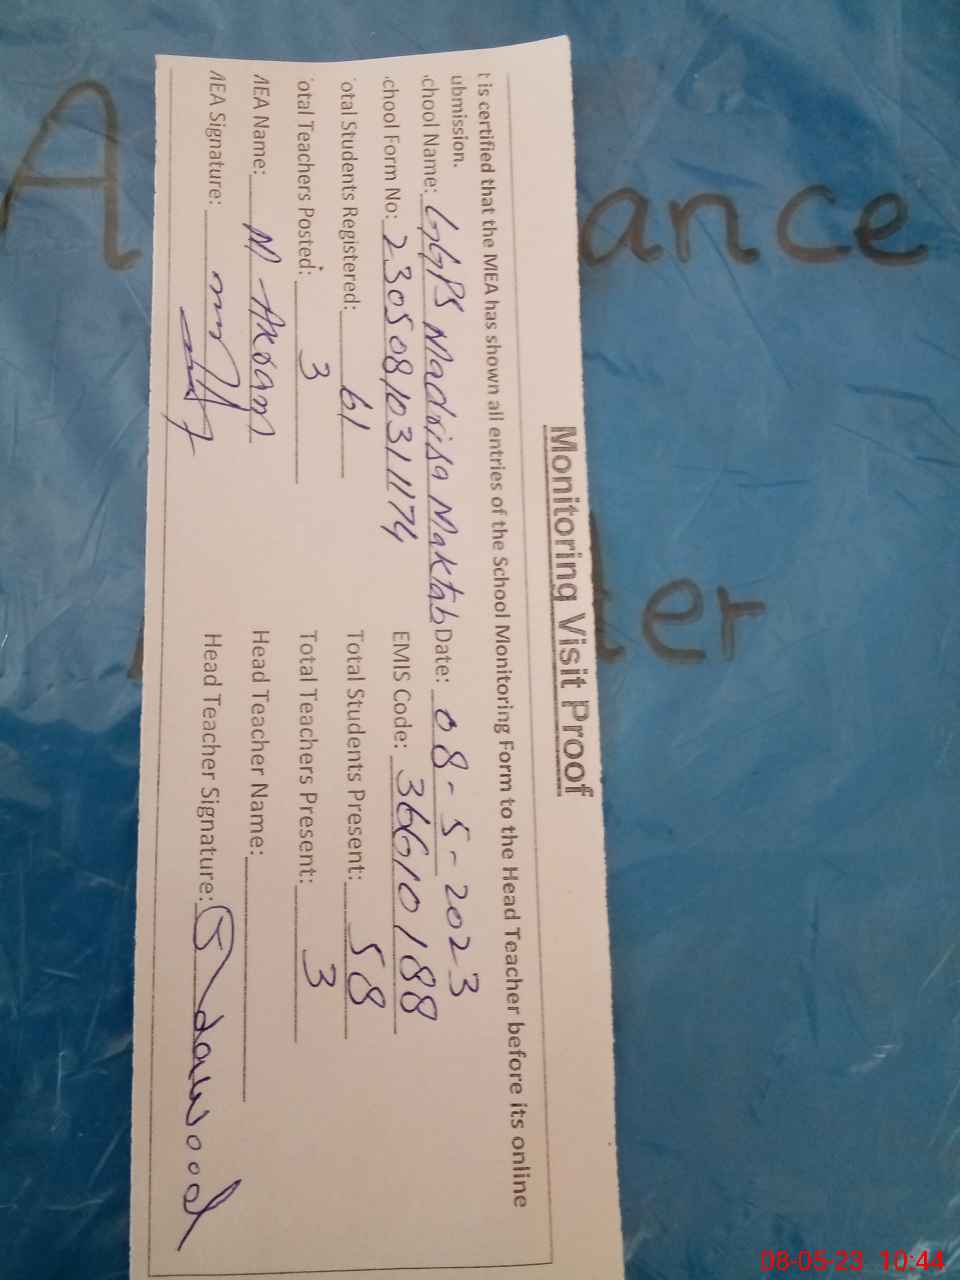 Monitoring Visit Proof
t is certified that the MEA has shown all entries of the School Monitoring Form to the Head Teacher before its online
ubmission.
chool Name: GGPS Madrisa Maktab Date: 08-5-2023
chool Form No: 2305081031174 EMIS Code: 36610188
otal Students Registered: 61 Total Students Present: 58
otal Teachers Posted: 3 Total Teachers Present: 3
MEA Name: M Akram Head Teacher Name:
MEA Signature: Head Teacher Signature: dawood
A ance
er
08-05-23 10:44